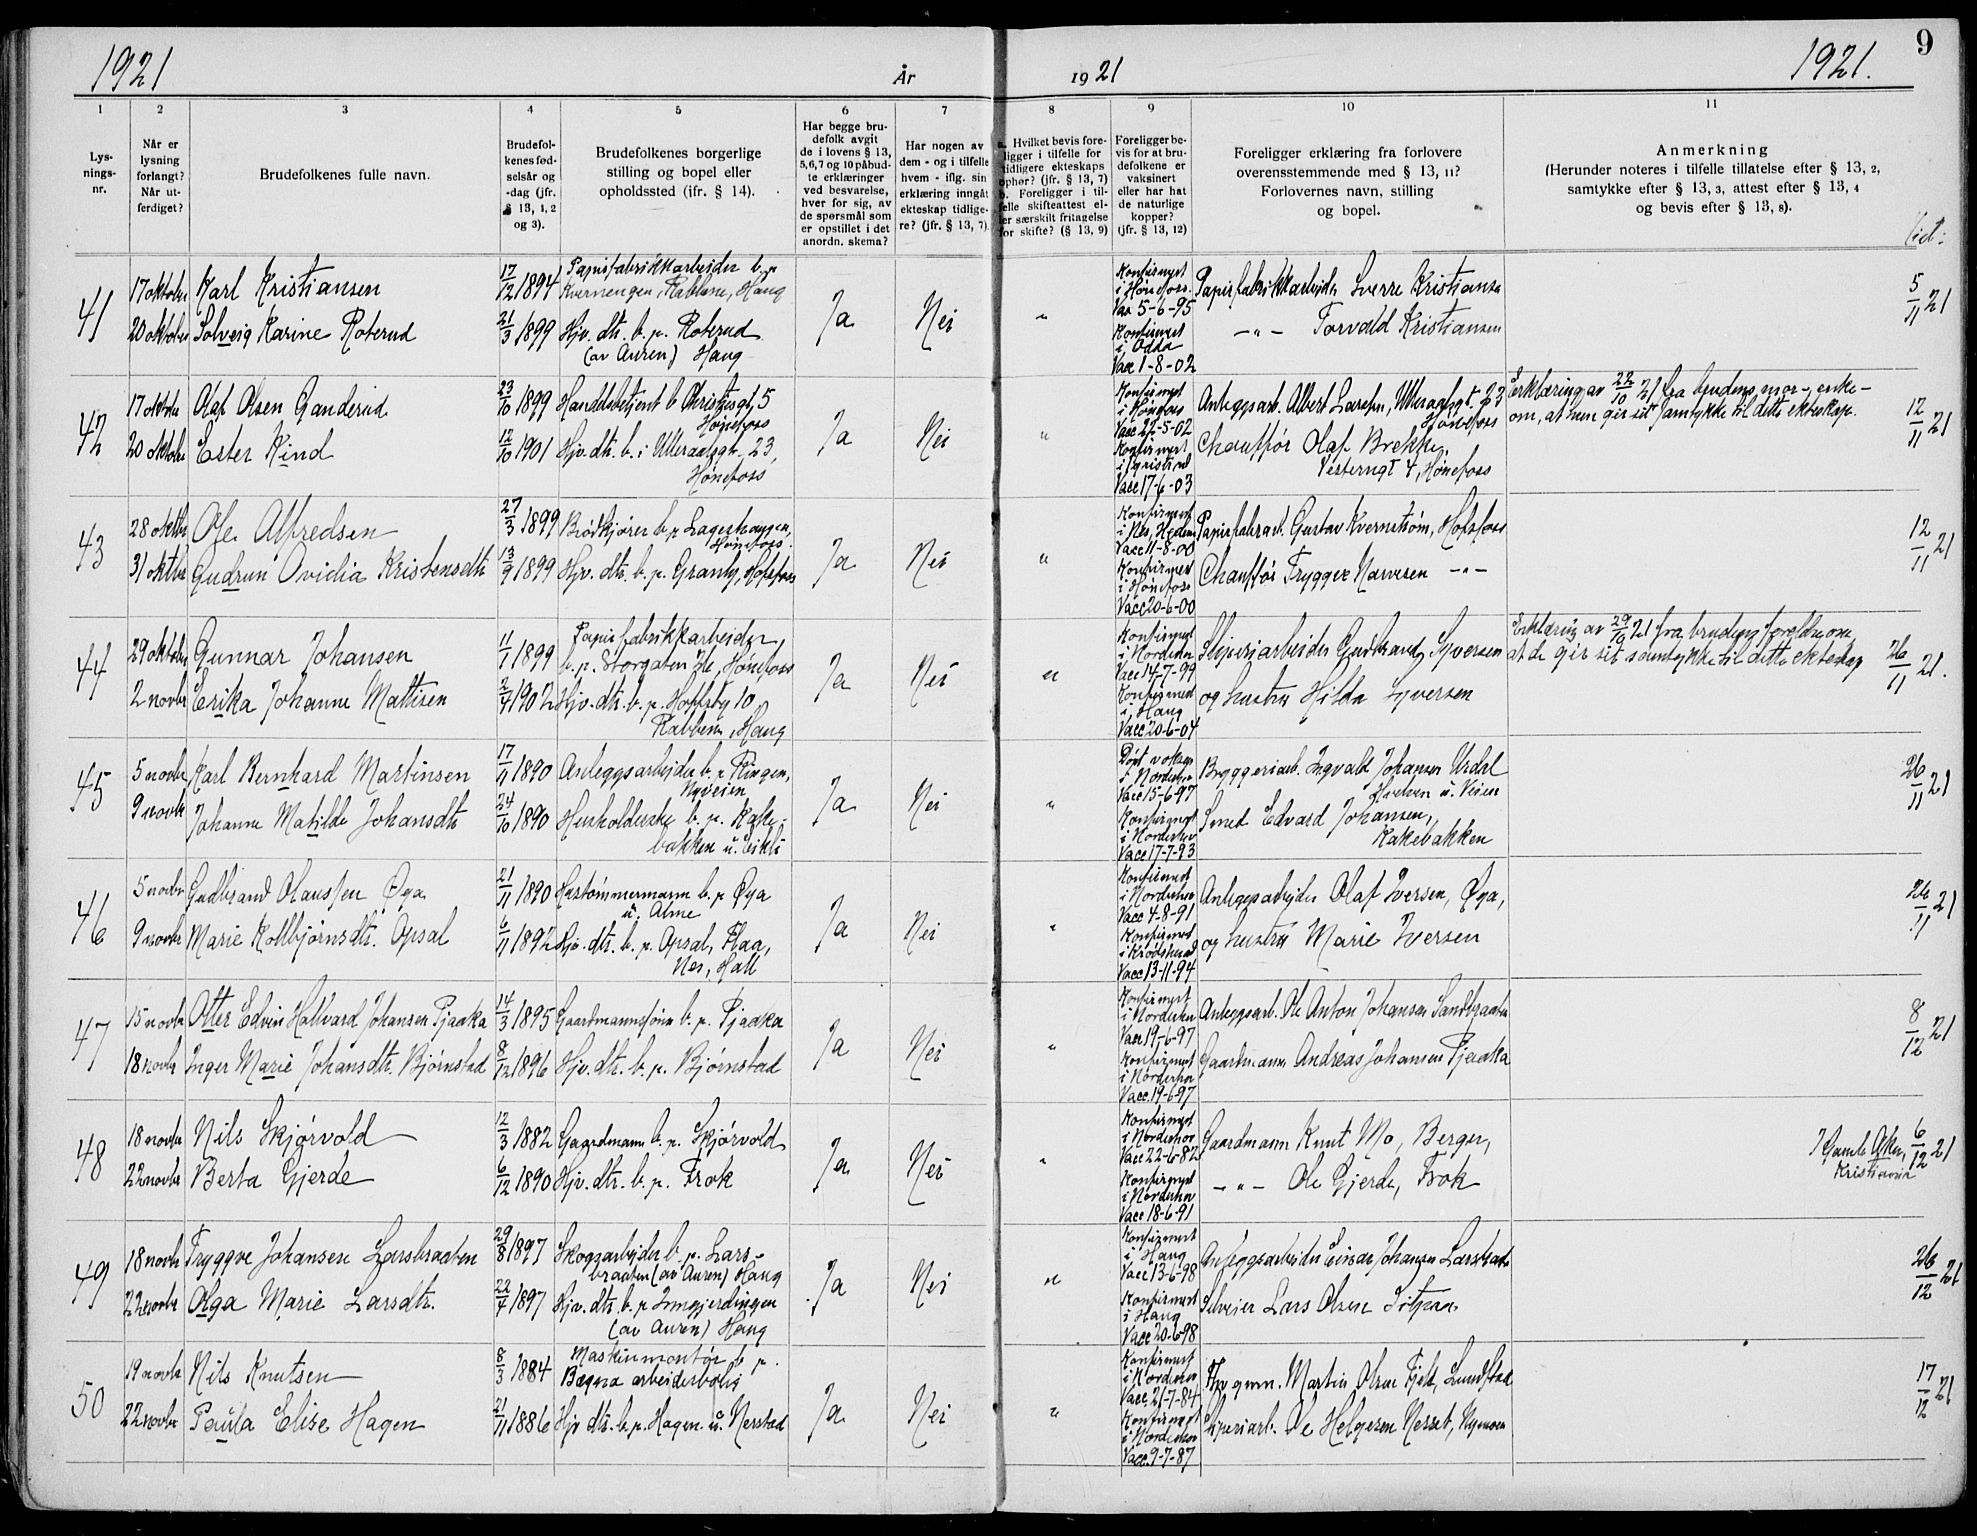 1921
År
1921
1921.
9
1
2
3
4
5
6
7
8
9
10
11
Lysningsnr.
Når er lysning forlangt? Når utferdiget?
Brudefolkenes fulle navn.
Brudefolkenes fødselsår og -dag (jfr. § 13, 1, 2 og 3).
Brudefolkenes borgerlige stilling og bopel eller opholdssted (ifr. § 14).
Har begge brudefolk avgit de i lovens § 13, 5,6,7 og 10 påbudte erklæringer ved besvarelse, hver for sig, av de spørsmål som er opstillet i det anordn. skema?
Har nogen av dem - og i tilfelle hvem - iflg. sin erklæring inngåt ekteskap tidligere? (jfr. § 13, 7)
a. Hvilket bevis foreligger i tilfelle for tidligere ekteskaps ophør? (jfr. § 13, 7) b. Foreligger i tilfelle skifteattest eller særskilt fritagelse for skifte? (§ 13, 9)
Foreligger bevis for at brudefolkene er vaksinert eller har hat de naturlige kopper? (jfr. § 13, 12)
Foreligger erklæring fra forlovere overensstemmende med § 13, 11? Forlovernes navn, stilling og bopel.
Anmerkning
(Herunder noteres i tilfelle tillatelse efter § 13, 2, samtykke efter § 13, 3, attest efter § 13, 4 og bevis efter § 13, 8).
Viet:
41
17 oktober Karl Kristiansen 17/12 1894 Papirfabrikkarbeider b. p. Kvernengen, Rabbene, Haug
20 oktober Solveig Karine Roterud 21/3 1899 Hjv. dtr. b. p. Roterud (av Auren) Haug
Ja Nei "
Konfirmert i Hønefoss. Vac 5-6-95
Konfirmert i Odda Vacc 1-8-02
Papirfabrikkarbeider Sverre Kristiansen
—"— Torvald Kristiansen
5/11 21
42
17 oktober Olaf Olsen Ganderud 23/10 1899 Handelsbetjent b. Christiesgt. 5 Hønefoss
20 oktober Ester Kind 12/10 1901 Hjv. dtr. b. i Ulleraalsgt. 23, Hønefoss
Ja Nei "
Konfirmert i Hønefoss Vacc 22-5-02
Konfirmert i Vacc 17-6-03
Anleggsarb. Albert Larsen, Ulleraalsgt. 23 Hønefoss
Chauffør Olaf Brekke, Vesterngt 4, Hønefoss
Erklæring av 22/10 21 fra brudens mor -, enke - om, at hun gir sit samtykke til dette ekteskap.
12/11 21
43
28 oktbr Ole Alfredsen 27/3 1899 Brødkjører b. p. Lageshaugen, Hønefoss.
31 oktbr Gudrun Ovidia Kristensdtr 13/9 1899 Hjv. dtr. b. p. Granly, Hofsfoss
Ja Nei "
Konfirmert i Nes, Hedem Vacc 11-8-00
Konfirmert i Hønefoss Vacc 20-6-00
Papirfabrarb. Gustav Kvernstrøm, Hofsfoss
Chauffør Tryggve Narvesen —"—
12/11 21
44
29 oktober Gunnar Johansen 11/7 1899 Papirfabrikkarbeider b. p. Storgaten Hønefoss
2 novbr Erika Johanne Mattisen 2/4 1902 Hjv. dtr. b. p. Hoffsby 10 Rabben, Haug
Ja Nei "
Konfirmert i Norderhov Vacc 14-7-99
Konfirmert i Haug Vacc 20-6-04
Sliperiarbeider Gudbrand Syversen
og hustru Hilda Syversen
Erklæring av 29/10 21 fra brudens foreldre om, at de gir sit samtykke til dette ekteskap
26/11 21.
45
5 novbr Karl Bernhard Martinsen 17/11 1890 Anleggsarbeider b. p. Ringen, Nyveien
9 novbr Johanne Matilde Johansdtr 24/10 1890 Husholderske b. p. Kakebakken u. Eikli
Ja Nei "
Døpt voksen i Norderhov Vacc 15-6-97
Konfirmert i Norderhov Vacc 17-7-93
Bryggeriarb. Ingvald Johansen Urdal u. Veien
Smed Edvard Johansen, Kakebakken
26/11 21
46
5 novbr Gudbrand Olaussen Øya 21/11 1890 Hustømmermann b. p. Øya u. Alme
9 novbr Marie Kolbjørnsdtr. Opsal 6/11 1892 Hjv. dtr. b. p. Opsal, Flaa, Nes, Hall
Ja Nei "
Konfirmert i Norderhov Vacc 4-8-91
Konfirmert i Krødsherad Vacc 13-11-94
Anleggsarbeider Olaf Iversen, Øya,
og hustru Marie Iversen
26/11 21
47
15 novbr Otter Edvin Hallvard Johansen Pjaaka 14/3 1895 Gaardmannssønn b. p. Pjaaka
18 novbr Inger Marie Johansdtr. Bjørnstad 8/12 1896 Hjv. dtr. b. p. Bjørnstad
Ja Nei "
Konfirmert i Norderhov Vacc 19-6-97
Konfirmert i Norderhov Vacc. 19-6-97
Anleggsarb. Ole Anton Johansen Sandbraaten
Gaardmann Andreas Johansen Pjaaka
8/12 21
48
18 novbr Nils Skjørvold 12/3 1882 Gaardmann b. p. Skjørvold
22 novbr Berta Gjerde 6/12 1890 Hjv. dtr. b. p. Frok
Ja Nei "
Konfirmert i Norderhov Vacc 22-6-82
Konfirmert i Norderhov Vacc 18-6-91
Gaardmann Knut Mo, Berger,
—"— Ole Gjerde, Frok
I Gamle Aker, Kristiania
6/12 21
49
18 novbr Tryggve Johansen Larsbraaten 29/8 1897 Skogsarbeider b. p. Larsbraaten (av Auren) Haug
22 novbr Olga Marie Larsdtr. 22/7 1897 Hjv. dtr. b. p. Inngjerdingen (av Auren) Haug
Ja Nei "
Konfirmert i Haug Vacc 13-6-98
Konfirmert i Haug Vacc 20-6-98
Anleggsarbeider Einar Johansen Larsbraaten
Selveier Lars Olsen
26/12 21
50
19 novbr Nils Knutsen 8/3 1884 Maskinmontør b. p. Bægna arbeiderbolig
22 novbr Paula Elise Hagen 21/11 1886 Hjv dtr. b. p. Hagen u. Nerstad
Ja Nei "
Konfirmert i Norderhov Vacc 21-7-84
Konfirmert i Norderhov Vacc. 9-7-87
Martin Olsen Fjeld, Lundstad
Sliperiarb. Ole Helgesen Nesset, Nymoen
17/12 21